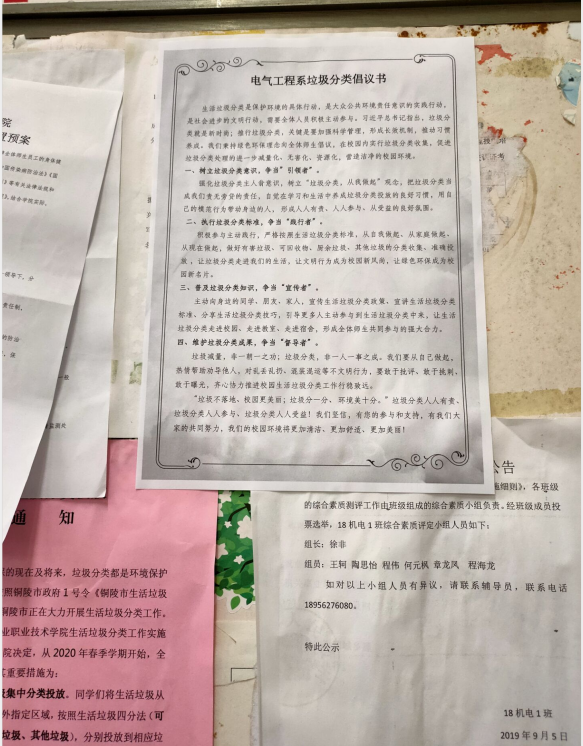 电气工程系垃圾分类倡议书
生活垃圾分类是保护环境的具体行动，是大众公共环境责任意识的实践行动，
是社会进步的文明行动，需要全体人员积极主动参与。习近平总书记指出，垃圾分
类就是新时尚；推行垃圾分类，关键是要加强科学管理，形成长效机制，推动习惯
养成。我们秉持绿色环保理念向全体师生倡议，在校园内实行垃圾分类收集，促进
垃圾分类处理的进一步减量化、无害化、资源化，营造洁净的校园环境。
一、树立垃圾分类意识，争当"引领者"。
强化垃圾分类主人翁意识，树立"垃圾分类，从我做起"观念，把垃圾分类当
成我们责无旁贷的责任，自觉在学习和生活中养成垃圾分类投放的良好习惯，用自
己的模范行为带动身边的人，形成人人有责、人人参与、人人受益的良好氛围。
二、执行垃圾分类标准，争当"践行者"。
积极参与主动践行，严格按照生活垃圾分类标准，从自我做起、从家庭做起、
从现在做起，做好有害垃圾、可回收物、厨余垃圾、其他垃圾的分类收集、准确投
放，让垃圾分类走进我们的生活，让文明行为成为校园新风尚，让绿色环保成为校
园新名片。
三、普及垃圾分类知识，争当"宣传者"。
主动向身边的同学、朋友、家人，宣传生活垃圾分类政策、宣讲生活垃圾分类
标准、分享生活垃圾分类技巧，引导更多人主动参与到生活垃圾分类中来，让生活
垃圾分类走进校园、走进教室、走进宿舍，形成全体师生共同参与的强大合力。
四、维护垃圾分类成果，争当"督导者"。
垃圾减量，非一朝一之功；垃圾分类，非一人一事之成。我们要从自己做起，
热情帮助劝导他人，对乱丢乱扔、混装混运等不文明行为，要敢于批评、敢于抵制、
敢于曝光，齐心协力推进校园生活垃圾分类工作行稳致远。
"垃圾不落地，校园更美丽；垃圾分一分、环境美十分。"垃圾分类人人有责、
垃圾分类人人参与、垃圾分类人人受益！我们坚信，有您的参与和支持，有我们大
家的共同努力，我们的校园环境将更加清洁、更加舒适、更加美丽！
院
预案
领导下，分
责任制，
通 知
的现在及将来，垃圾分类都是环境保护
照铜陵市政府1号令《铜陵市生活垃圾
铜陵市正在大力开展生活垃圾分类工作。
业职业技术学院生活垃圾分类工作实施
院决定，从2020年春季学期开始，全
重要措施为：
集中分类投放。同学们将生活垃圾从
外指定区域，按照生活垃圾四分法（可
垃圾、其他垃圾），分别投放到相应垃
公告
施细则》，各班级
的综合素质测评工作由班级组成的综合素质小组负责。经班级成员投
票选举，18机电1班综合素质评定小组人员如下：
组长：徐非
组员：王轲 陶思怡 程伟 何元枫 章龙风 程海龙
如对以上小组人员有异议，请联系辅导员，联系电话
18956276080。
特此公示
18机电1班
2019年9月5日